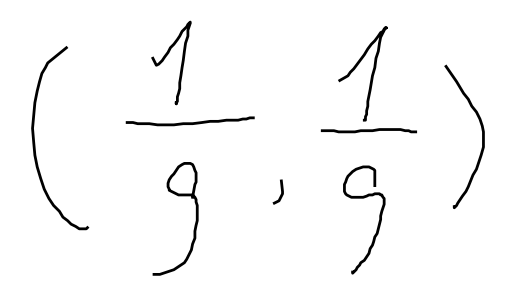 (1/9, 1/9)